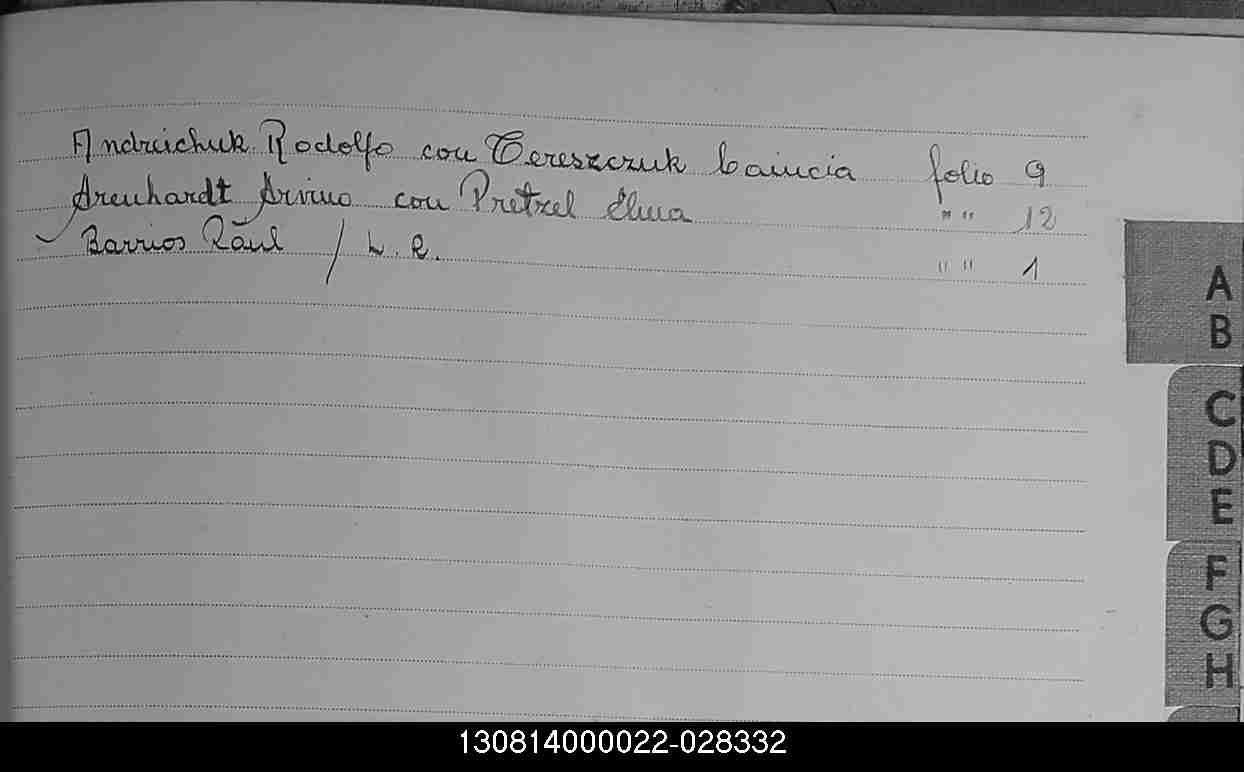 Andruichuk Rodolfo con Tereszczuk folio 9
Arenhardt Arvino con Pretzel Elma " " 12
Barrios Raúl / L. R. " " 1
A
B
C
D
E
F
G
H
130814000022-028332